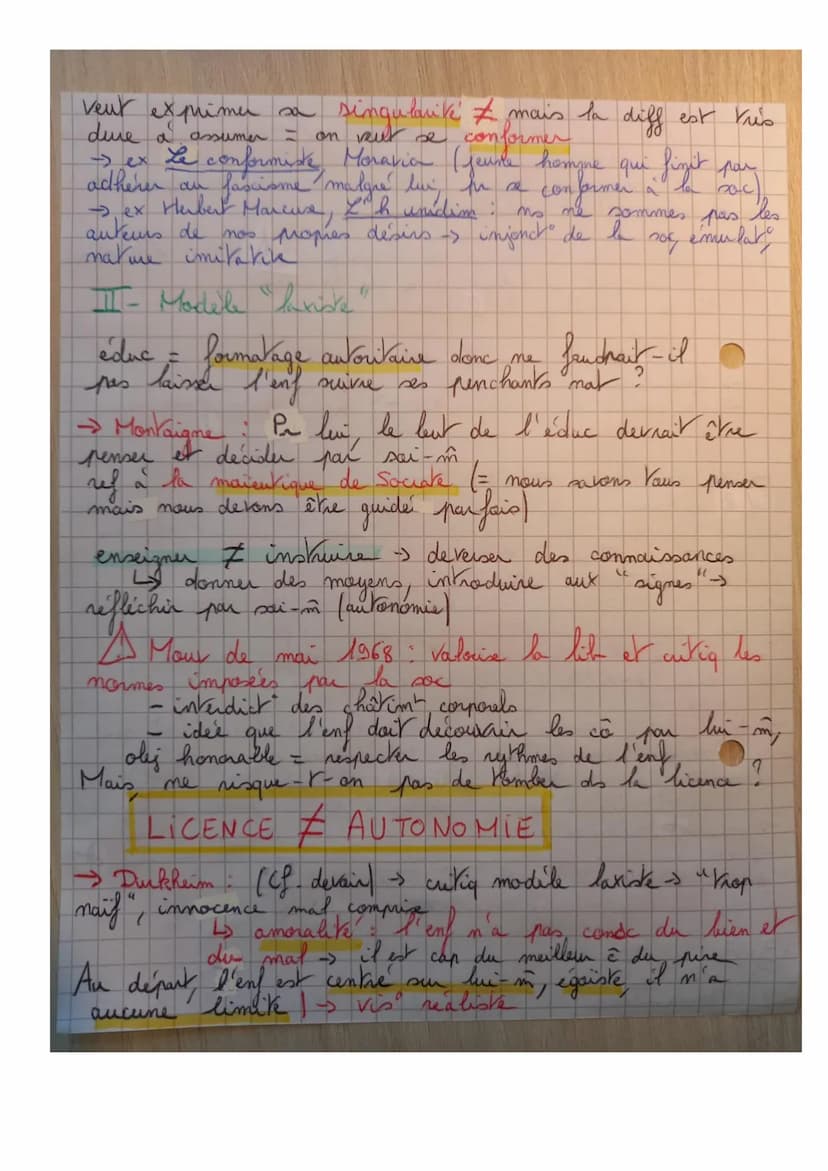 veut exprimer sa singularité ≠ mais la diff est très
dure à assumer = on veut se conformer
→ ex Le conformiste, Moravia (jeune homme qui finit par
adhérer au fascisme malgré lui, pr se conformer à la soc)
→ ex Herbert Marcuse, L'h unidim : ns ne sommes pas les
auteurs de nos propres désirs → injonct° de la soc, émulat°,
nature imitative
II - Modèle "laxiste"
éduc = formatage autoritaire donc ne faudrait-il
pas laisser l'enf suivre ses penchants nat ?
→ Montaigne : Pr lui, le but de l'éduc devrait être
penser et décider par soi-m̂
ref à la maïeutique de Socrate (= nous savons tous penser
mais nous devons être guidé parfois)
enseigner ≠ instruire → déverser des connaissances
↳ donner des moyens, introduire aux "signes" →
réfléchir par soi-m̂ (autonomie)
⚠ Mouv de mai 1968 : valorise la lib et critiq les
normes imposées par la soc
- interdict° des châtimt corporels
- idée que l'enf doit découvrir les cô par lui-m̂,
obj honorable = respecter les rythmes de l'enf
Mais, ne risque-t-on pas de tomber ds la licence ?
LICENCE ≠ AUTONOMIE
→ Durkheim : (cf. devoir) → critiq modèle laxiste → "trop
naïf", innocence mal comprise
↳ amoralité : l'enf n'a pas consc du bien et
du mal → il est cap du meilleur c̄ du pire
Au départ, l'enf est centré sur lui-m̂, égoïste, il n'a
aucune limite | → vis° réaliste